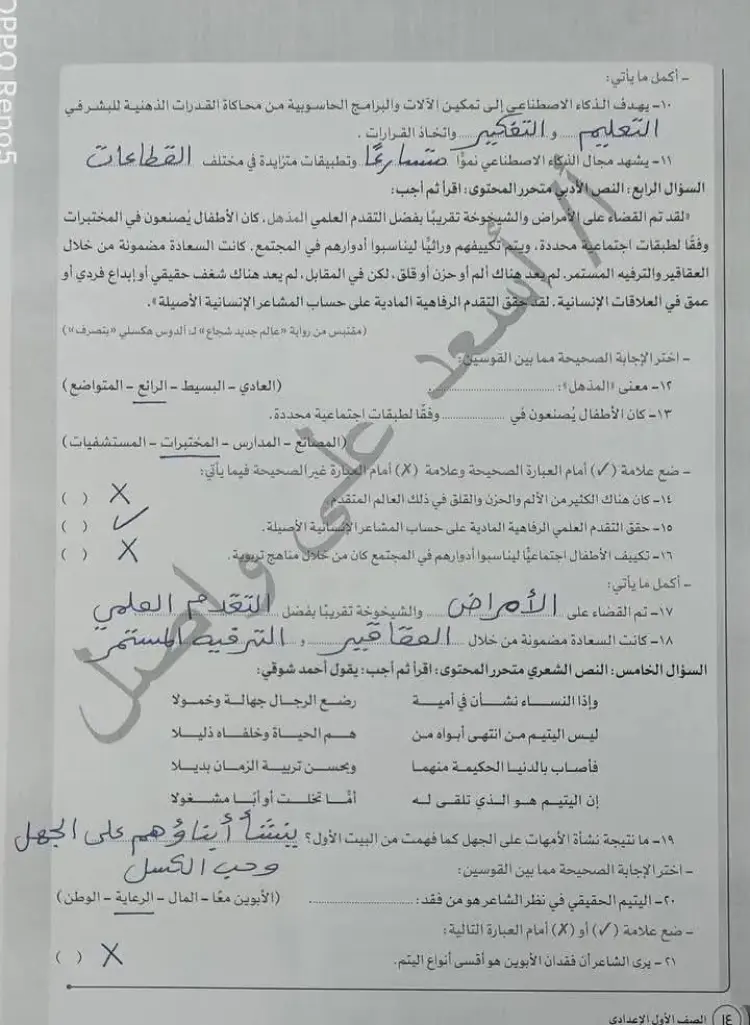 OPPO Reno5
- أكمل ما يأتي:
١٠- يهدف الذكاء الاصطناعي إلى تمكين الآلات والبرامج الحاسوبية من محاكاة القدرات الذهنية للبشر في
التعليم و التفكير واتخاذ القرارات .
١١- يشهد مجال الذكاء الاصطناعي نموًا متسارعًا وتطبيقات متزايدة في مختلف القطاعات
السؤال الرابع: النص الأدبي متحرر المحتوى: اقرأ ثم أجب:
«لقد تم القضاء على الأمراض والشيخوخة تقريبًا بفضل التقدم العلمي المذهل، كان الأطفال يُصنعون في المختبرات
وفقًا لطبقات اجتماعية محددة، ويتم تكييفهم وراثيًا ليناسبوا أدوارهم في المجتمع، كانت السعادة مضمونة من خلال
العقاقير والترفيه المستمر، لم يعد هناك ألم أو حزن أو قلق، لكن في المقابل، لم يعد هناك شغف حقيقي أو إبداع فردي أو
عمق في العلاقات الإنسانية، لقد حقق التقدم الرفاهية المادية على حساب المشاعر الإنسانية الأصيلة».
(مقتبس من رواية «عالم جديد شجاع» لـ ألدوس هكسلي «بتصرف»)
- اختر الإجابة الصحيحة مما بين القوسين:
١٢- معنى «المذهل»: (العادي - البسيط - الرائع - المتواضع)
١٣- كان الأطفال يُصنعون في وفقًا لطبقات اجتماعية محددة.
(المصانع - المدارس - المختبرات - المستشفيات)
- ضع علامة (✓) أمام العبارة الصحيحة وعلامة (✗) أمام العبارة غير الصحيحة فيما يأتي:
١٤- كان هناك الكثير من الألم والحزن والقلق في ذلك العالم المتقدم. ✗ ( )
١٥- حقق التقدم العلمي الرفاهية المادية على حساب المشاعر الإنسانية الأصيلة. ✓ ( )
١٦- تكييف الأطفال اجتماعيًا ليناسبوا أدوارهم في المجتمع كان من خلال مناهج تربوية. ✗ ( )
- أكمل ما يأتي:
١٧- تم القضاء على الأمراض والشيخوخة تقريبًا بفضل التقدم العلمي
١٨- كانت السعادة مضمونة من خلال العقاقير و الترفيه المستمر
السؤال الخامس: النص الشعري متحرر المحتوى: اقرأ ثم أجب: يقول أحمد شوقي:
وإذا النساء نشأن في أمية رضع الرجال جهالة وخمولا
ليس اليتيم من انتهى أبواه من هم الحياة وخلفاه ذليلا
فأصاب بالدنيا الحكيمة منهما وبحسن تربية الزمان بديلا
إن اليتيم هو الذي تلقى له أمًا تخلت أو أبًا مشغولا
١٩- ما نتيجة نشأة الأمهات على الجهل كما فهمت من البيت الأول؟ ينشأ أبناؤهم على الجهل
وحب الكسل
- اختر الإجابة الصحيحة مما بين القوسين:
٢٠- اليتيم الحقيقي في نظر الشاعر هو من فقد: (الأبوين معًا - المال - الرعاية - الوطن)
- ضع علامة (✓) أو (✗) أمام العبارة التالية:
٢١- يرى الشاعر أن فقدان الأبوين هو أقسى أنواع اليتم. ✗ ( )
١٤ الصف الأول الإعدادي
أ/ أسعد علي واصل